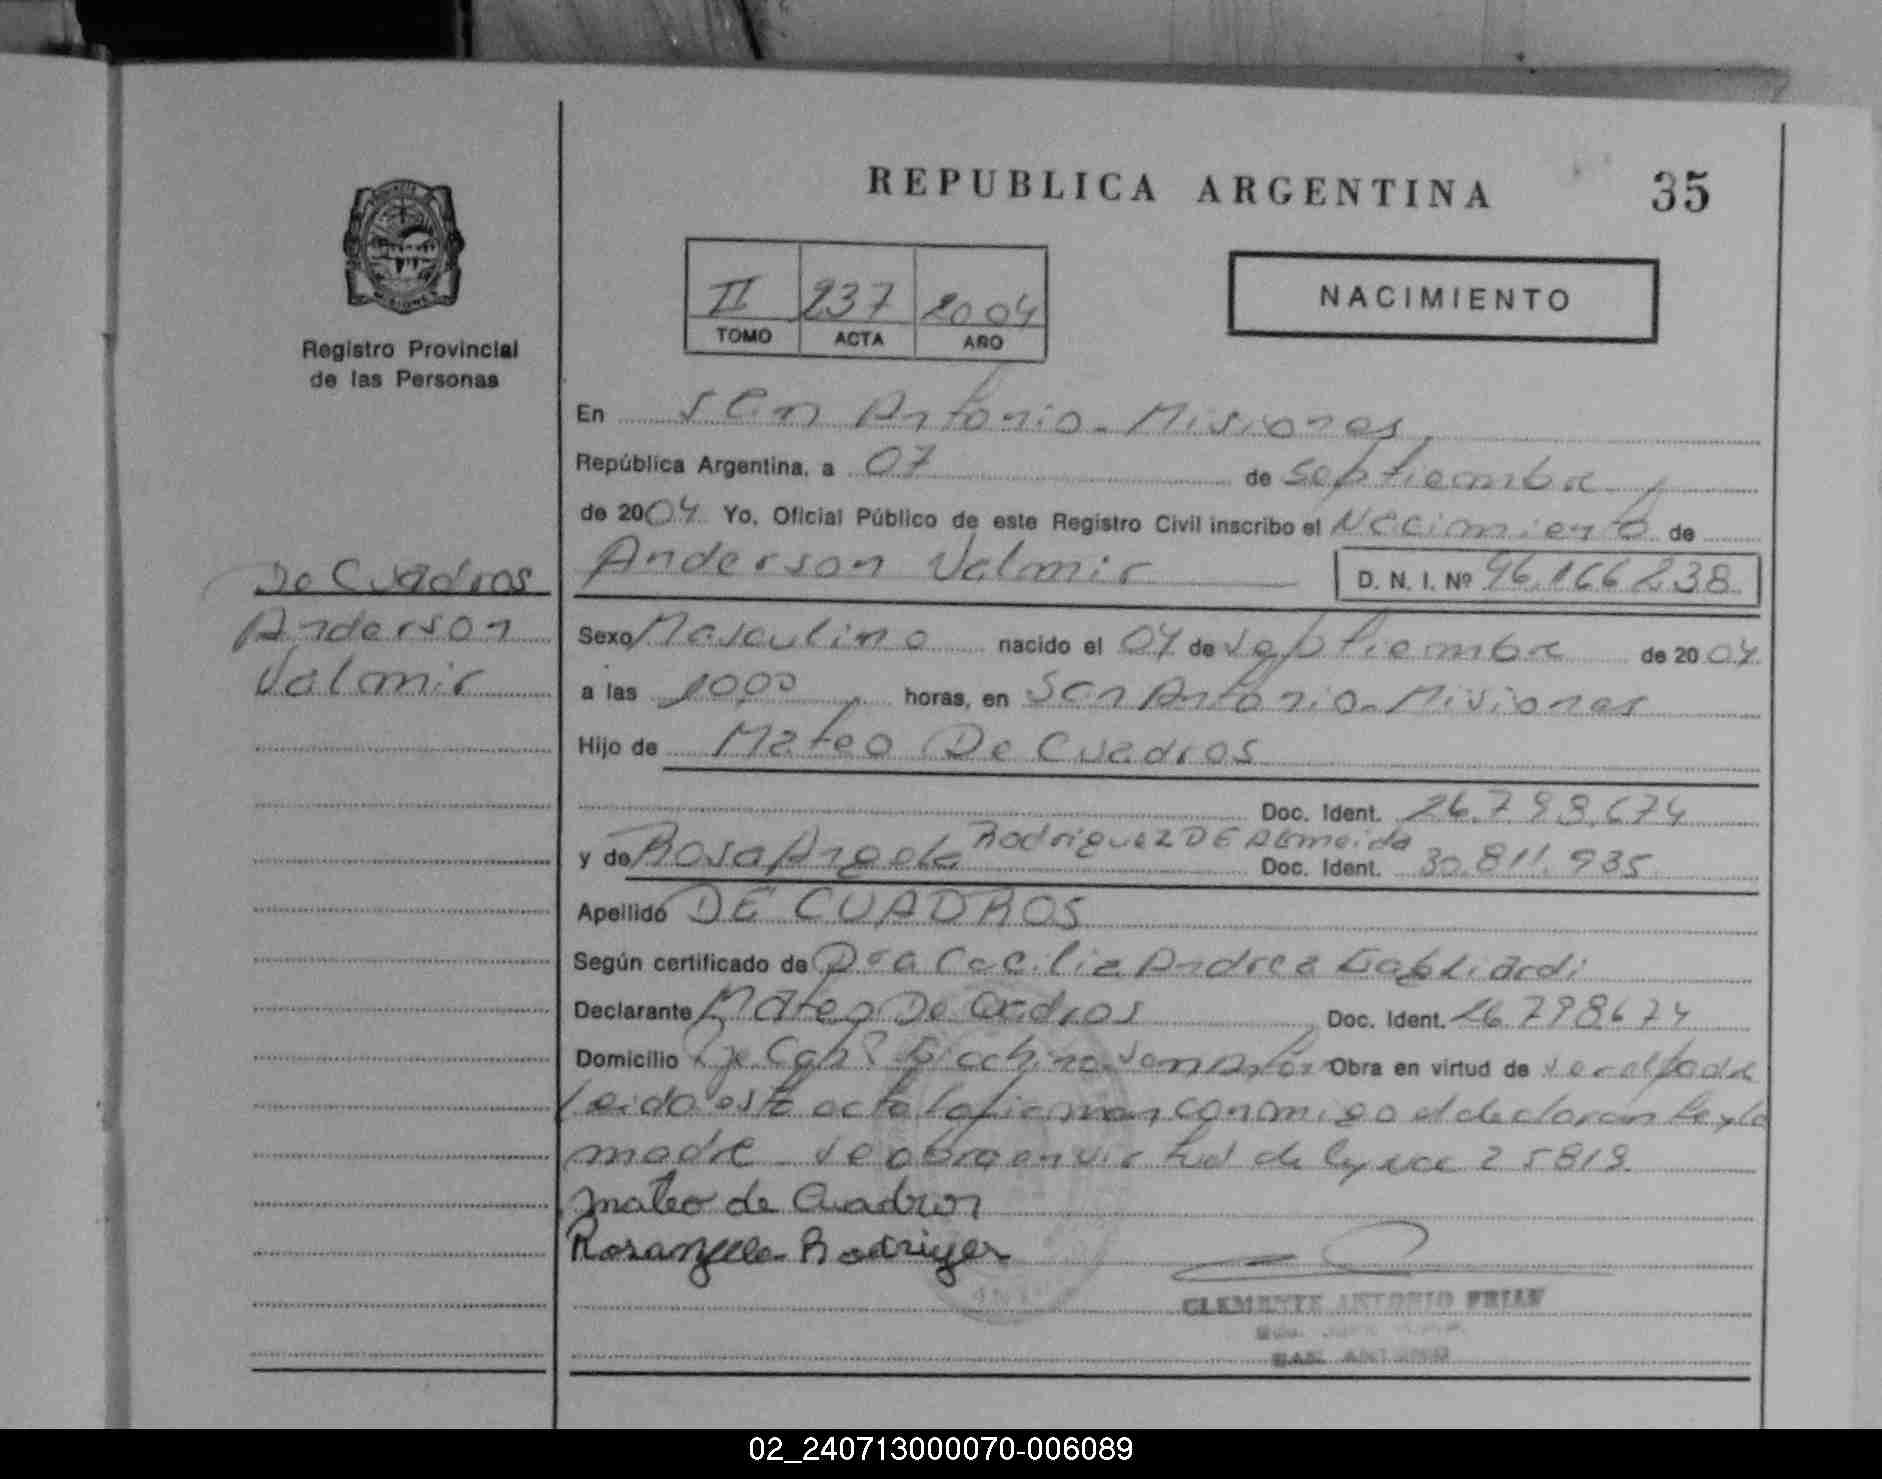 REPUBLICA ARGENTINA
35
Registro Provincial
de las Personas
II 237 2004
TOMO ACTA AÑO
NACIMIENTO
En San Antonio - Misiones
República Argentina, a 07 de Septiembre
de 2004 Yo, Oficial Público de este Registro Civil inscribo el Nacimiento de
Anderson Valmir D. N. I. Nº 46.166.238
De Cuadros
Anderson
Valmir
Sexo Masculino nacido el 04 de Septiembre de 2004
a las 10,00 horas, en San Antonio - Misiones
Hijo de Mateo De Cuadros
Doc. Ident. 26.798.674
y de Rosa Angela Rodriguez DE Almeida Doc. Ident. 30.811.935
Apellido DE CUADROS
Según certificado de Dra Cecilia Andrea Gagliardi
Declarante Mateo De Cuadros Doc. Ident. 26.798.674
Domicilio Obra en virtud de ser el padre
leida esta acta la firman conmigo el declarante y la
madre se obra en virtud de ley nro 25819
Mateo de Cuadros
Rosangela Rodriguez
CLEMENTE ANTONIO
SAN ANTONIO
02_240713000070-006089